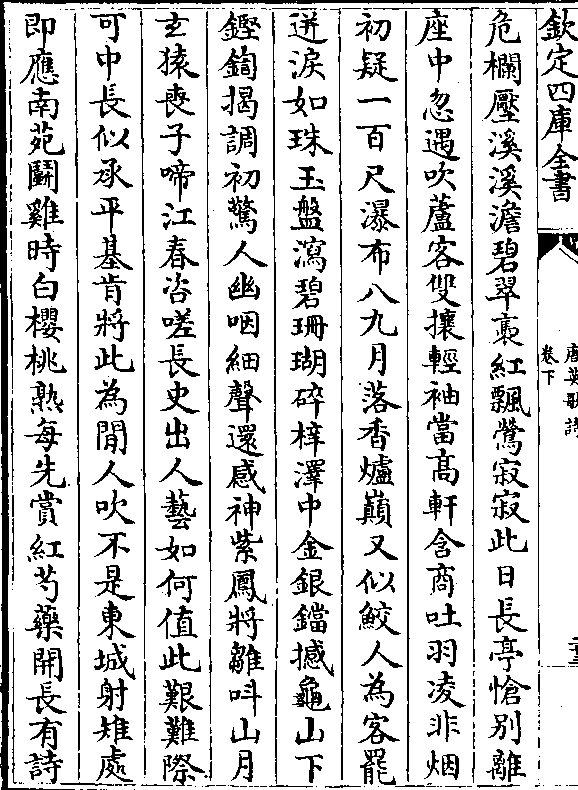 欽定四庫全書
唐英歌詩
卷下
危欄壓溪溪澹碧翠裹紅飄鶯寂寂此日長亭愴別離
座中忽遇吹蘆客雙攘輕袖當高軒含商吐羽凌非烟
初疑一百尺瀑布八九月落香爐巔又似鮫人為客罷
迸淚如珠玉盤瀉碧珊瑚碎梓澤中金銀鐺撼龜山下
鏗鍧揭調初驚人幽咽細聲還感神紫鳳將離叫山月
玄猿喪子啼江春咨嗟長史出人藝如何值此艱難際
可中長似承平基肯將此為閒人吹不是東城射雉處
即應南苑鬭雞時白櫻桃熟每先賞紅芍藥開長有詩